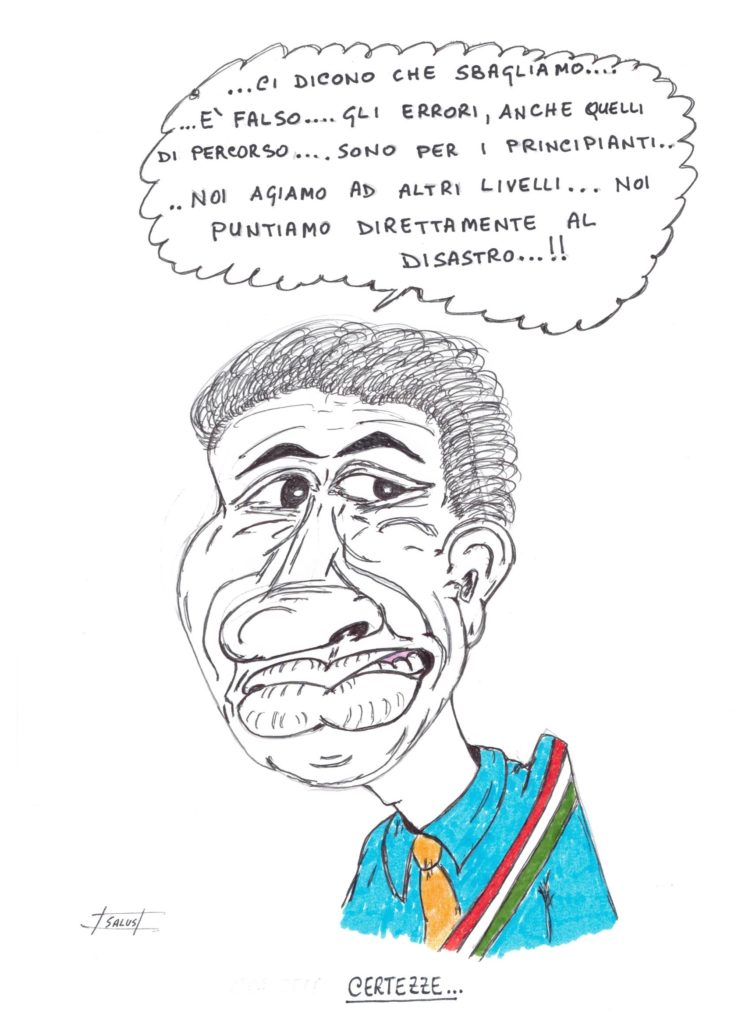 ...CI DICONO CHE SBAGLIAMO....
...E' FALSO.... GLI ERRORI, ANCHE QUELLI
DI PERCORSO.... SONO PER I PRINCIPIANTI..
..NOI AGIAMO AD ALTRI LIVELLI... NOI
PUNTIAMO DIRETTAMENTE AL
DISASTRO...!!
SALUS
CERTEZZE...